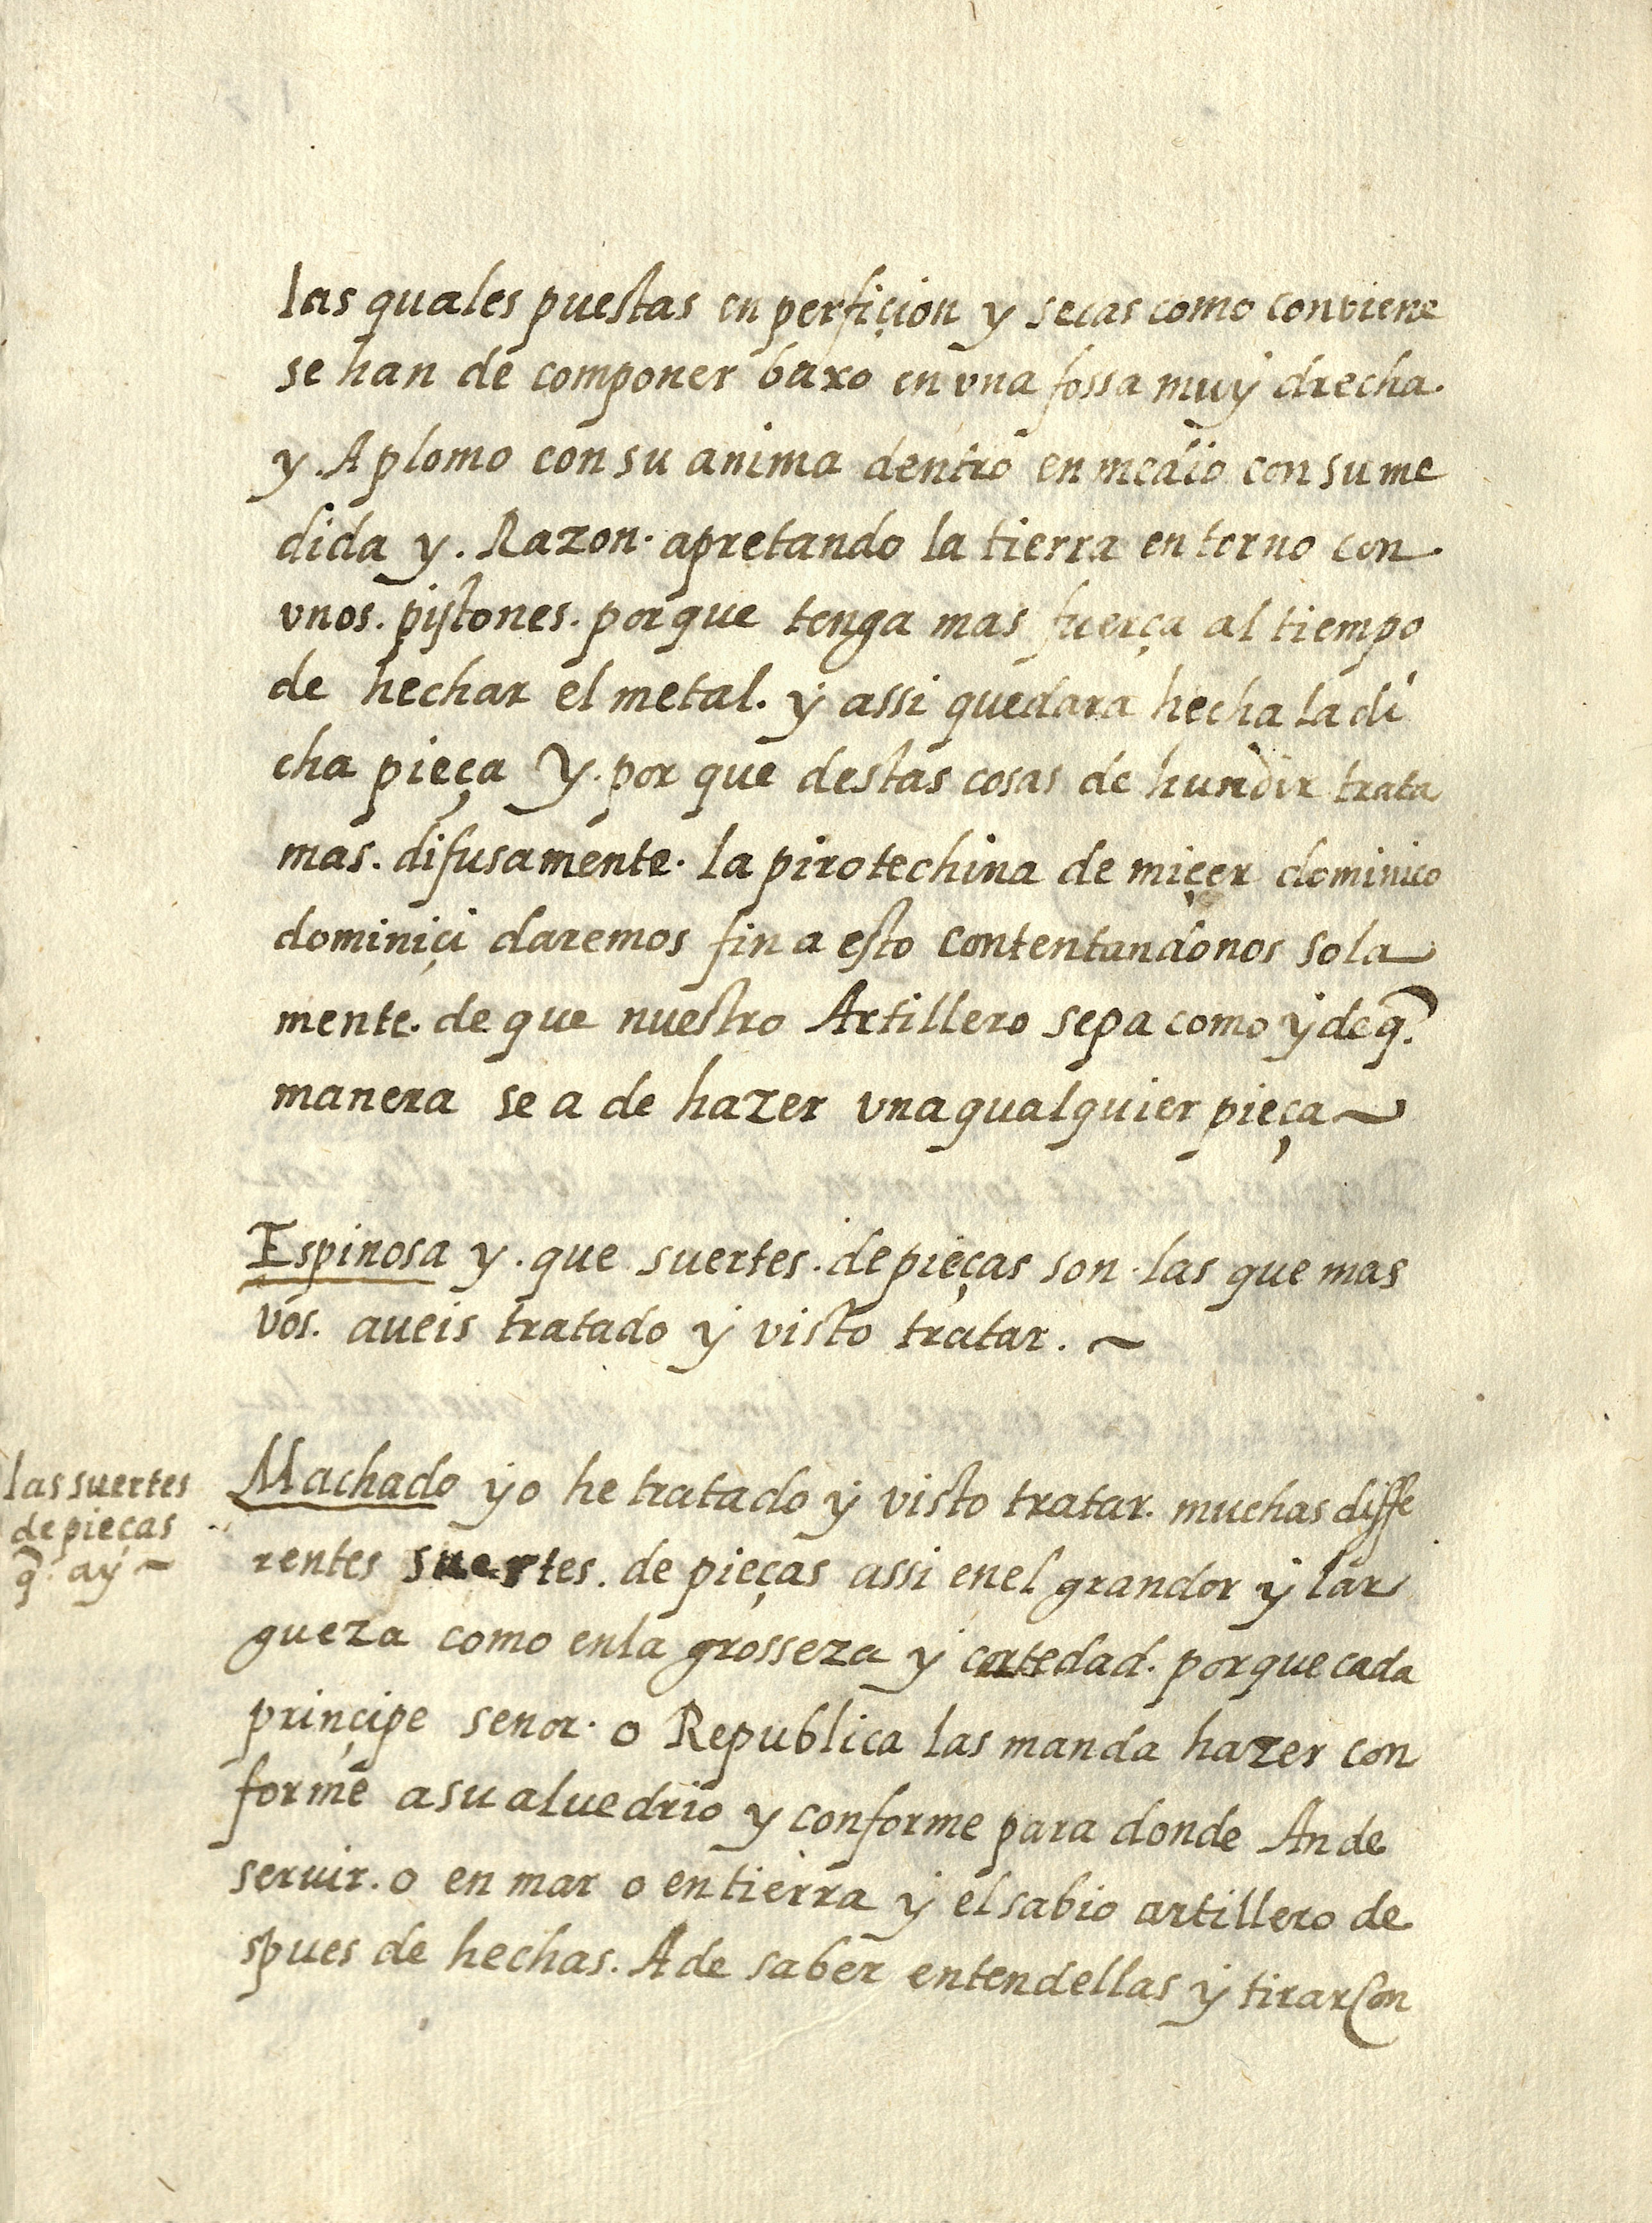 las quales puestas en perfiçion y secas como conviene
se han de componer baxo en vna fossa muy drecha.
y. A plomo con su anima dentro en medio con su me
dida y. Razon. apretando la tierra en torno con
vnos. pistones. porque tenga mas fuerça al tiempo
de hechar el metal. y assi quedara hecha la di
cha pieça Y. por que destas cosas de hundir trata
mas. difusamente. la pirotechina de miçer dominico
dominiçi daremos fin a esto contentandonos sola
mente. de que nuestro Artillero sepa como y de q̃.
manera se a de hazer vna qualquier pieça ~
Espinosa y. que suertes. de pieças son. las que mas
vos. aueis tratado y visto tratar. ~
las suertes
de pieças
q̃. ay ~
Machado yo he tratado y visto tratar. muchas diffe
rentes suertes. de pieças assi enel grandor y lar
gueza como enla grosseza y cortedad. porque cada
prinçipe senor. o Republica las manda hazer con
forme a su aluedrio y conforme para donde An de
seruir. o en mar o en tierra y el sabio artillero de
spues de hechas. A de saber entendellas y tirar Con